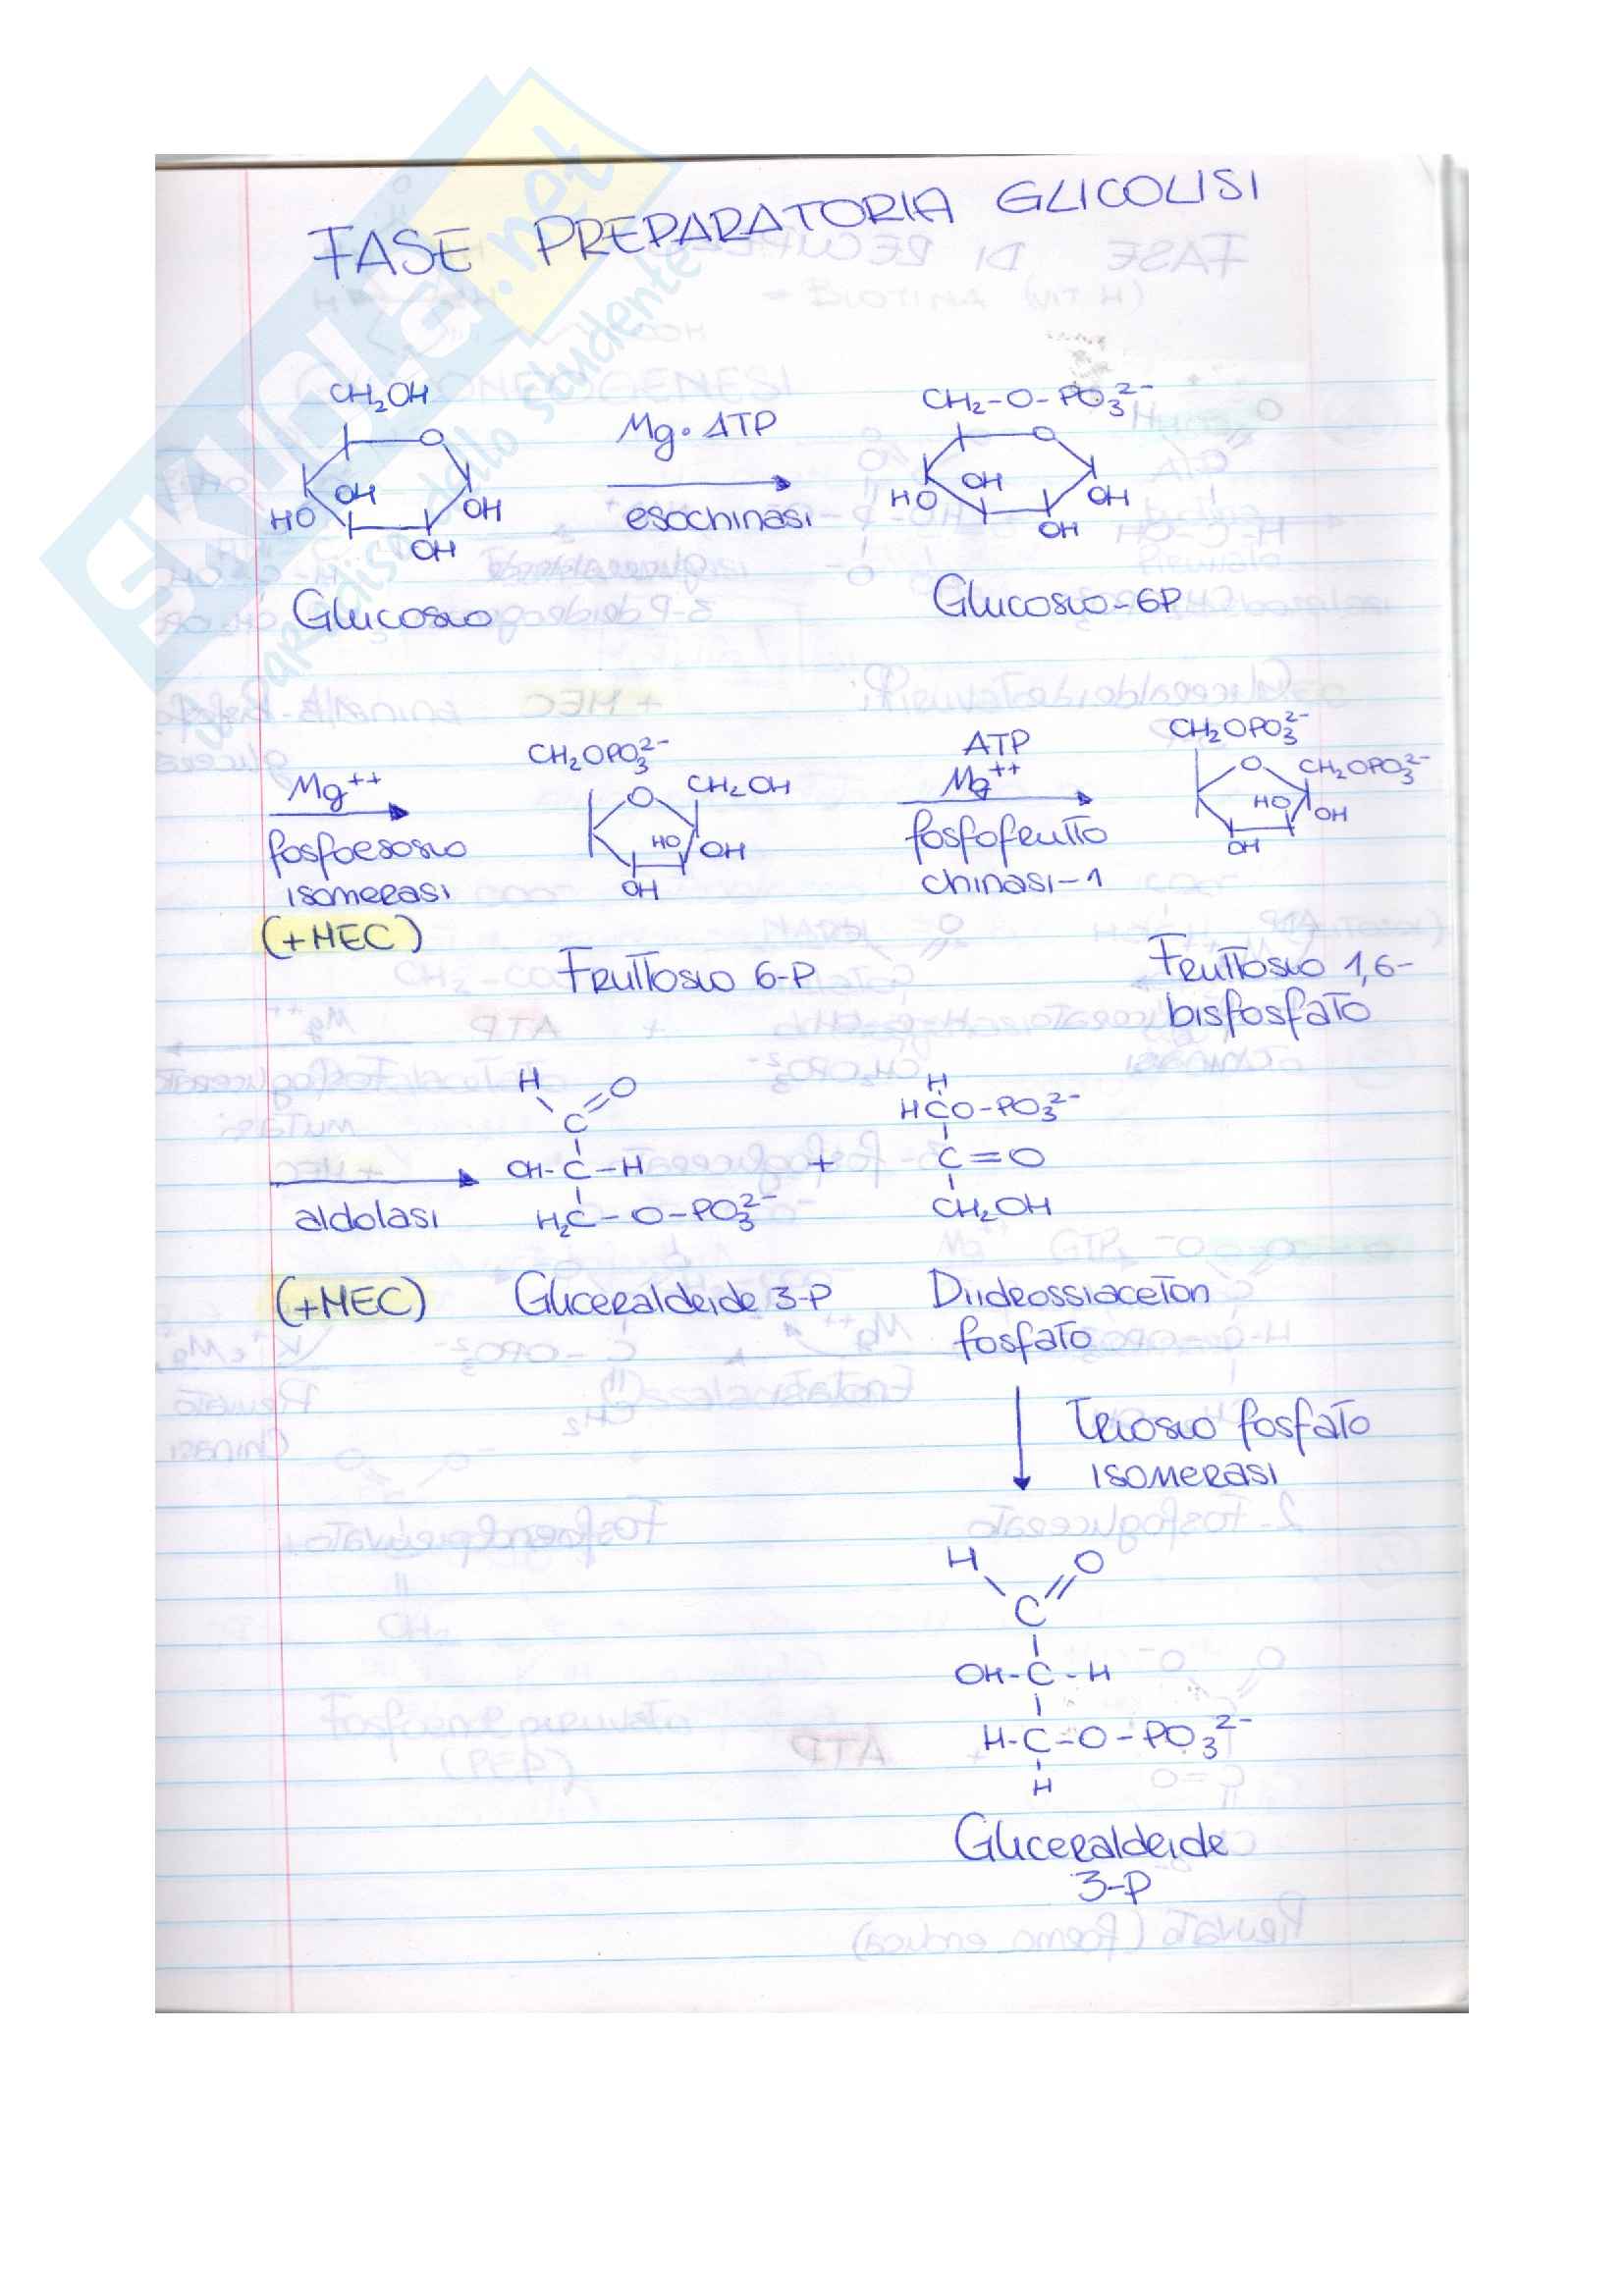 FASE PREPARATORIA GLICOLISI
CH₂OH
O
OH
HO
OH
OH
Glucosio
Mg·ATP
esochinasi
CH₂-O-PO₃²⁻
O
OH
HO
OH
OH
Glucosio-6P
Mg⁺⁺
fosfoesosio
isomerasi
(+MEC)
CH₂OPO₃²⁻
O
CH₂OH
HO
OH
OH
Fruttosio 6-P
ATP
Mg⁺⁺
fosfofrutto
chinasi-1
CH₂OPO₃²⁻
O
CH₂OPO₃²⁻
HO
OH
OH
Fruttosio 1,6-
bisfosfato
aldolasi
(+MEC)
H
O
C
OH-C-H
H₂C-O-PO₃²⁻
Gliceraldeide 3-P
+
H
HCO-PO₃²⁻
C=O
CH₂OH
Diidrossiaceton
fosfato
Triosio fosfato
isomerasi
H
O
C
OH-C-H
H-C-O-PO₃²⁻
H
Gliceraldeide
3-P
SKUOLA.net
il paradiso dello studente